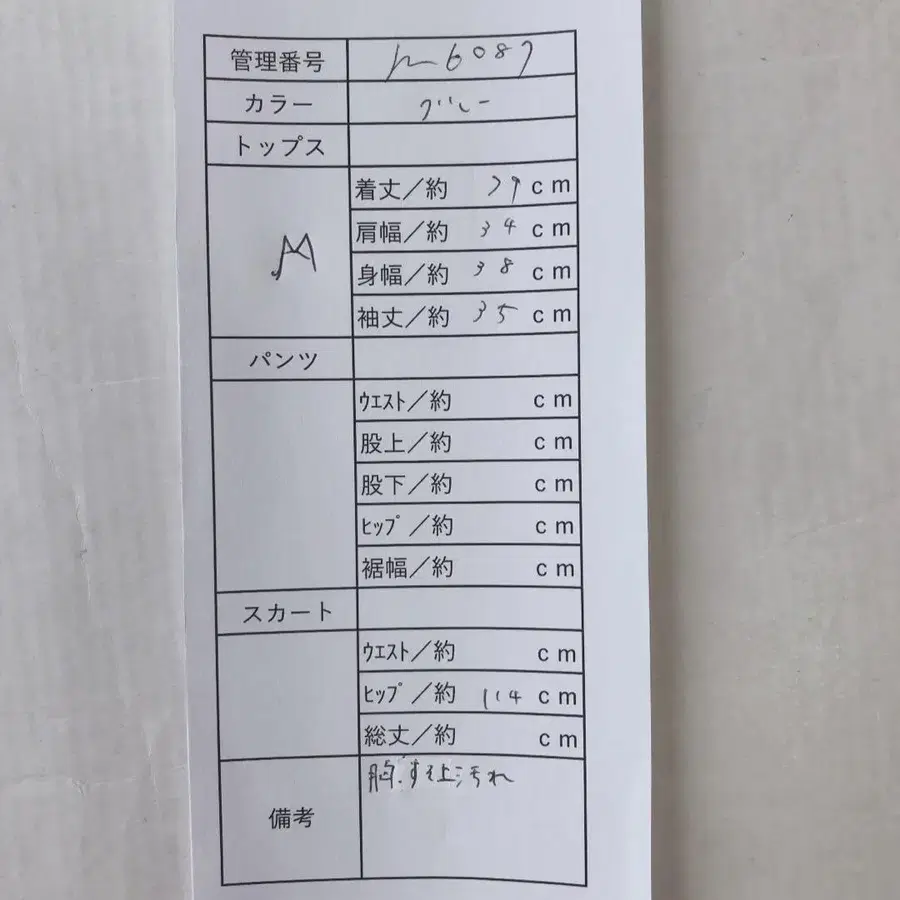 管理番号 m6087
カラー グレー
トップス
着丈／約 79 cm
M
肩幅／約 34 cm
身幅／約 38 cm
袖丈／約 35 cm
パンツ
ｳｴｽﾄ／約 cm
股上／約 cm
股下／約 cm
ﾋｯﾌﾟ／約 cm
裾幅／約 cm
スカート
ｳｴｽﾄ／約 cm
ﾋｯﾌﾟ／約 114 cm
総丈／約 cm
備考 胸、すそ上汚れ